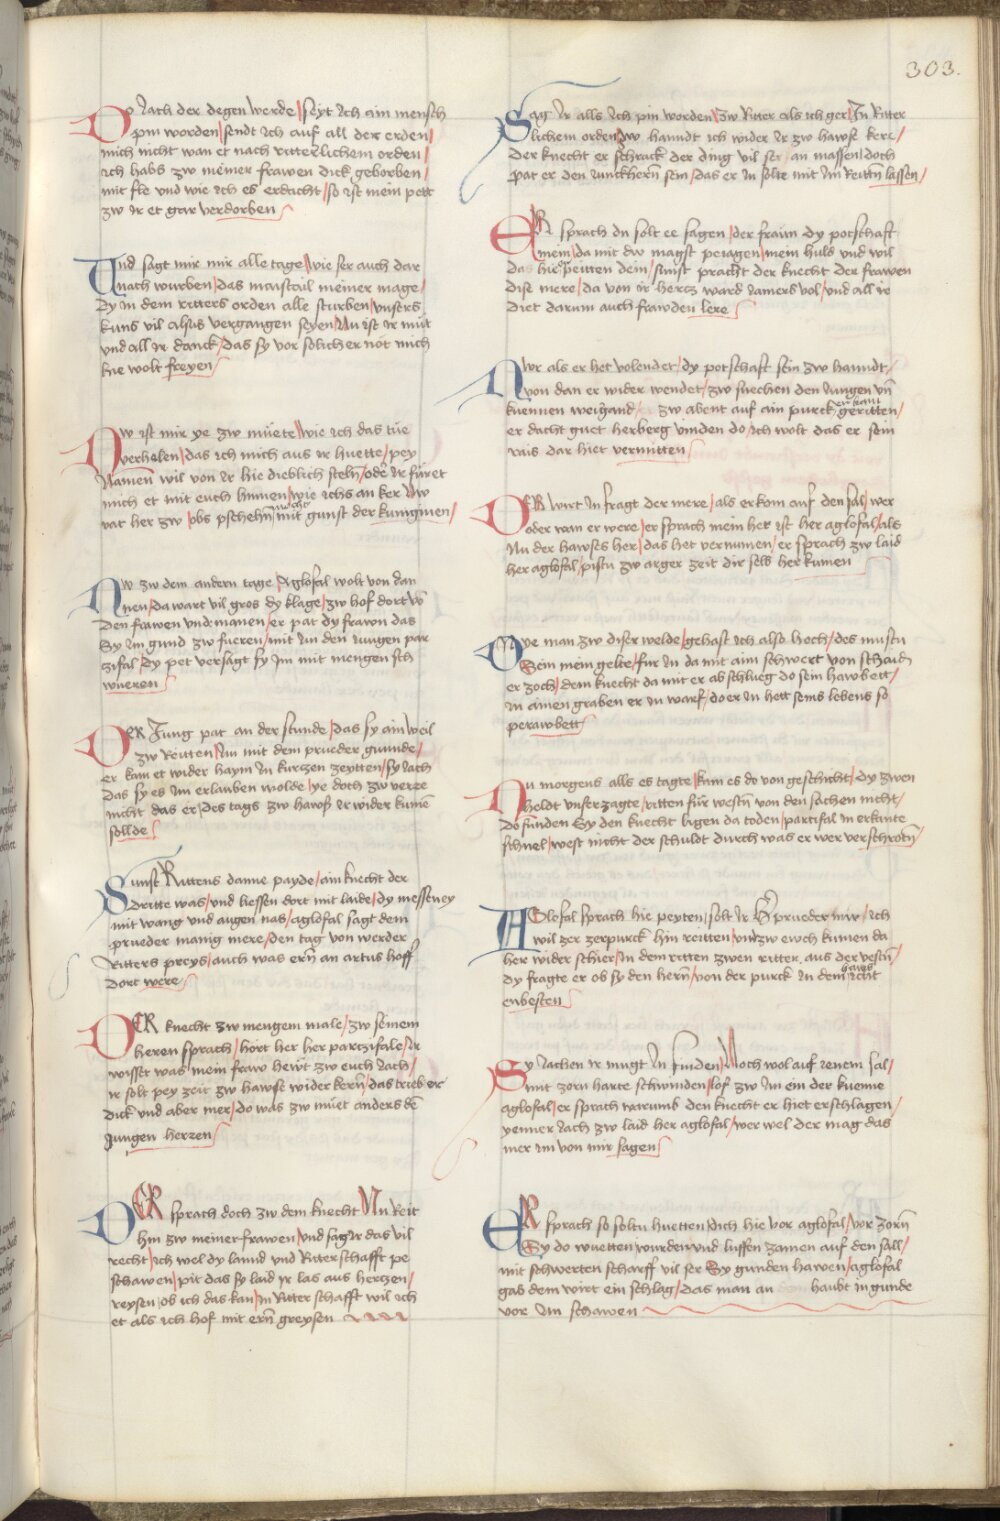 303.
Do iach der degen werde / seyt ich ain mensch
pin worden / sendt ich auf all der erden /
mich nicht wan et nach ritterlichem orden /
ich habs zw meiner frawen dick geborben /
mit fle vnd wie ich es erdacht / so ist mein pett
zw ir et gar verdorben
Vnd sagt mir mir alle tage / wie ser auch dar
nach wurben / das maistail meiner mage /
dy in dem ritters orden alle sturben / vnsers
kuns vil alsus vergangen seyen / nu ist ir mut
vnd all ir danck / das sy vor solicher not mich
kne wolt freyen
Nw ist mir ye zw müete / wie ich das tüe
verhelen / das ich mich aus ir huette / pey
Namen wil von ir hie dieblich steln / oder ir füret
mich et mit euch hinnen / wie ichs an ker nw
vat her zw / obs pschehn mit gunst der kunginen /
Nw zw dem andern tage / Aglofal wolt von dan
nen / da wart vil gros dy klage / zw hof dort vō
den frawen vnd manen / er pat dy frawn das
Sy im gund zw fueren / mit im den iungen par
zifal / dy pet versagt sy im mit mengen sch
wueren
Der Jung pat an der stunde / das sy ain weil
zw reitten / im mit dem prueder gunde /
er kam et wider haym in kurczen zeytten / sy iach
das sy es im erlauben wolde / ye doch zw verre
nicht das er / des tags zw hawss ir wider kume
sollde
Sunst Ruttens danne payde / ain knecht der
dritte was / vnd liessen dort mit laide / dy messeney
mit wang vnd augen nas / aglofal sagt dem
prueder manig mere / den tag von werder
Ritters preys / auch was ern an artus hoff
dort were
Der knecht zw mengem male / zw seinem
heren sprach / hort her her parczifale / ir
wisset was mein fraw hewt zw euch iach /
ir solt pey zeit zw hawse wider kern / das trieb er
dick vnd aber mer / do was zw müet anders dē
Jungen herzen
Er sprach doch zw dem knecht / Nu Reit
hin zw meiner frawen / vnd sag ir das vil
recht / ich wel dy lannd vnd Riterschafft pe
schawen / pit das sy laid ir las aus herczen /
reysen / ob ich das kan / in Ritter schafft wil ich
et als ich hof mit ern greysen
Sag ir alls ich pin worden / zw Riter als ich ger / In Ritter
lichem orden / so hanndt ich wider ir zw hawse kere /
der knecht er schrack der ding vil ser / an massen / doch
pat er den iunckhern sein / das er in solte mit im Reittn lassen /
Er sprach du solt ee sagen / der frawn dy potschaft
mein / da mit dw magst peiagen / mein huld vnd wil
da hie peitten dein / sunst pracht der knecht der frawen
dise mere / da von ir hercz ward iamers vol / vnd all ir
diet darum auch frawden lere
Nwr als er het volendet / dy potschaft sein zw hanndt /
von dan er wider wendet / zw suechen den iungen vn
kuennen weigand / zw abent auf ain purck geritten /
er dacht guet herberg vinden do / ich wolt das er sein
rais dar hiet vermitten
Der wirt in fragt der mere / als er kom auf den sal / wer
oder wan er were / er sprach mein her ist her aglofal / als
nu der hawses her / das het vernumen / er sprach zw laid
her aglofal / pistu zw arger zeit dir selb her kumen
Owe man zw diser welde / gehast ich also hoch / des mustu
Sein mein gelte / fur in da mit aim schwert von schaid
er zoch / dem knecht da mit er ab schlueg do sein hawbett /
in ainen graben er in warf / do er in hett seins lebens so
perawbett
Nu morgens alls es tagte / kam es do von geschicht / dy zwen
heldt vnser zagte / ritten für westn von den sachen nicht /
do funden Sy den knecht ligen da toden / partzifal in erkante
schnel / west nicht der schuldt durch was er wer verschrotn /
Aglofal sprach hie peyten / solt ir Er prueder mir / ich
wil zer zerpurck hin reitten / vnd zw ewch kumen da
her wider schier / in dem ritten zwen ritter aus der vestn /
dy fragte er ob sy den hern / von der purck in dem icht
erbesten
Sy iachen ir mugt in finden / Noch wol auf ienem sal /
mit zorn harte schwinden / lof zw im ein der kuenne
aglofal / er sprach warumb den knecht er hiet erschlagen /
yenner iach zw laid her aglofal / wer wel der mag das
mer im von mir sagen
Er sprach so soltu huetten / dich hie vor aglofal / vor zorn
Sy do wuetten / wurden vnd luffen zamen auf den sall /
mit schwerten scharff vil ser Sy gunden hawen / aglofal
gab dem wirt ein schlag / das man an haubt in gunde
vor im schawen